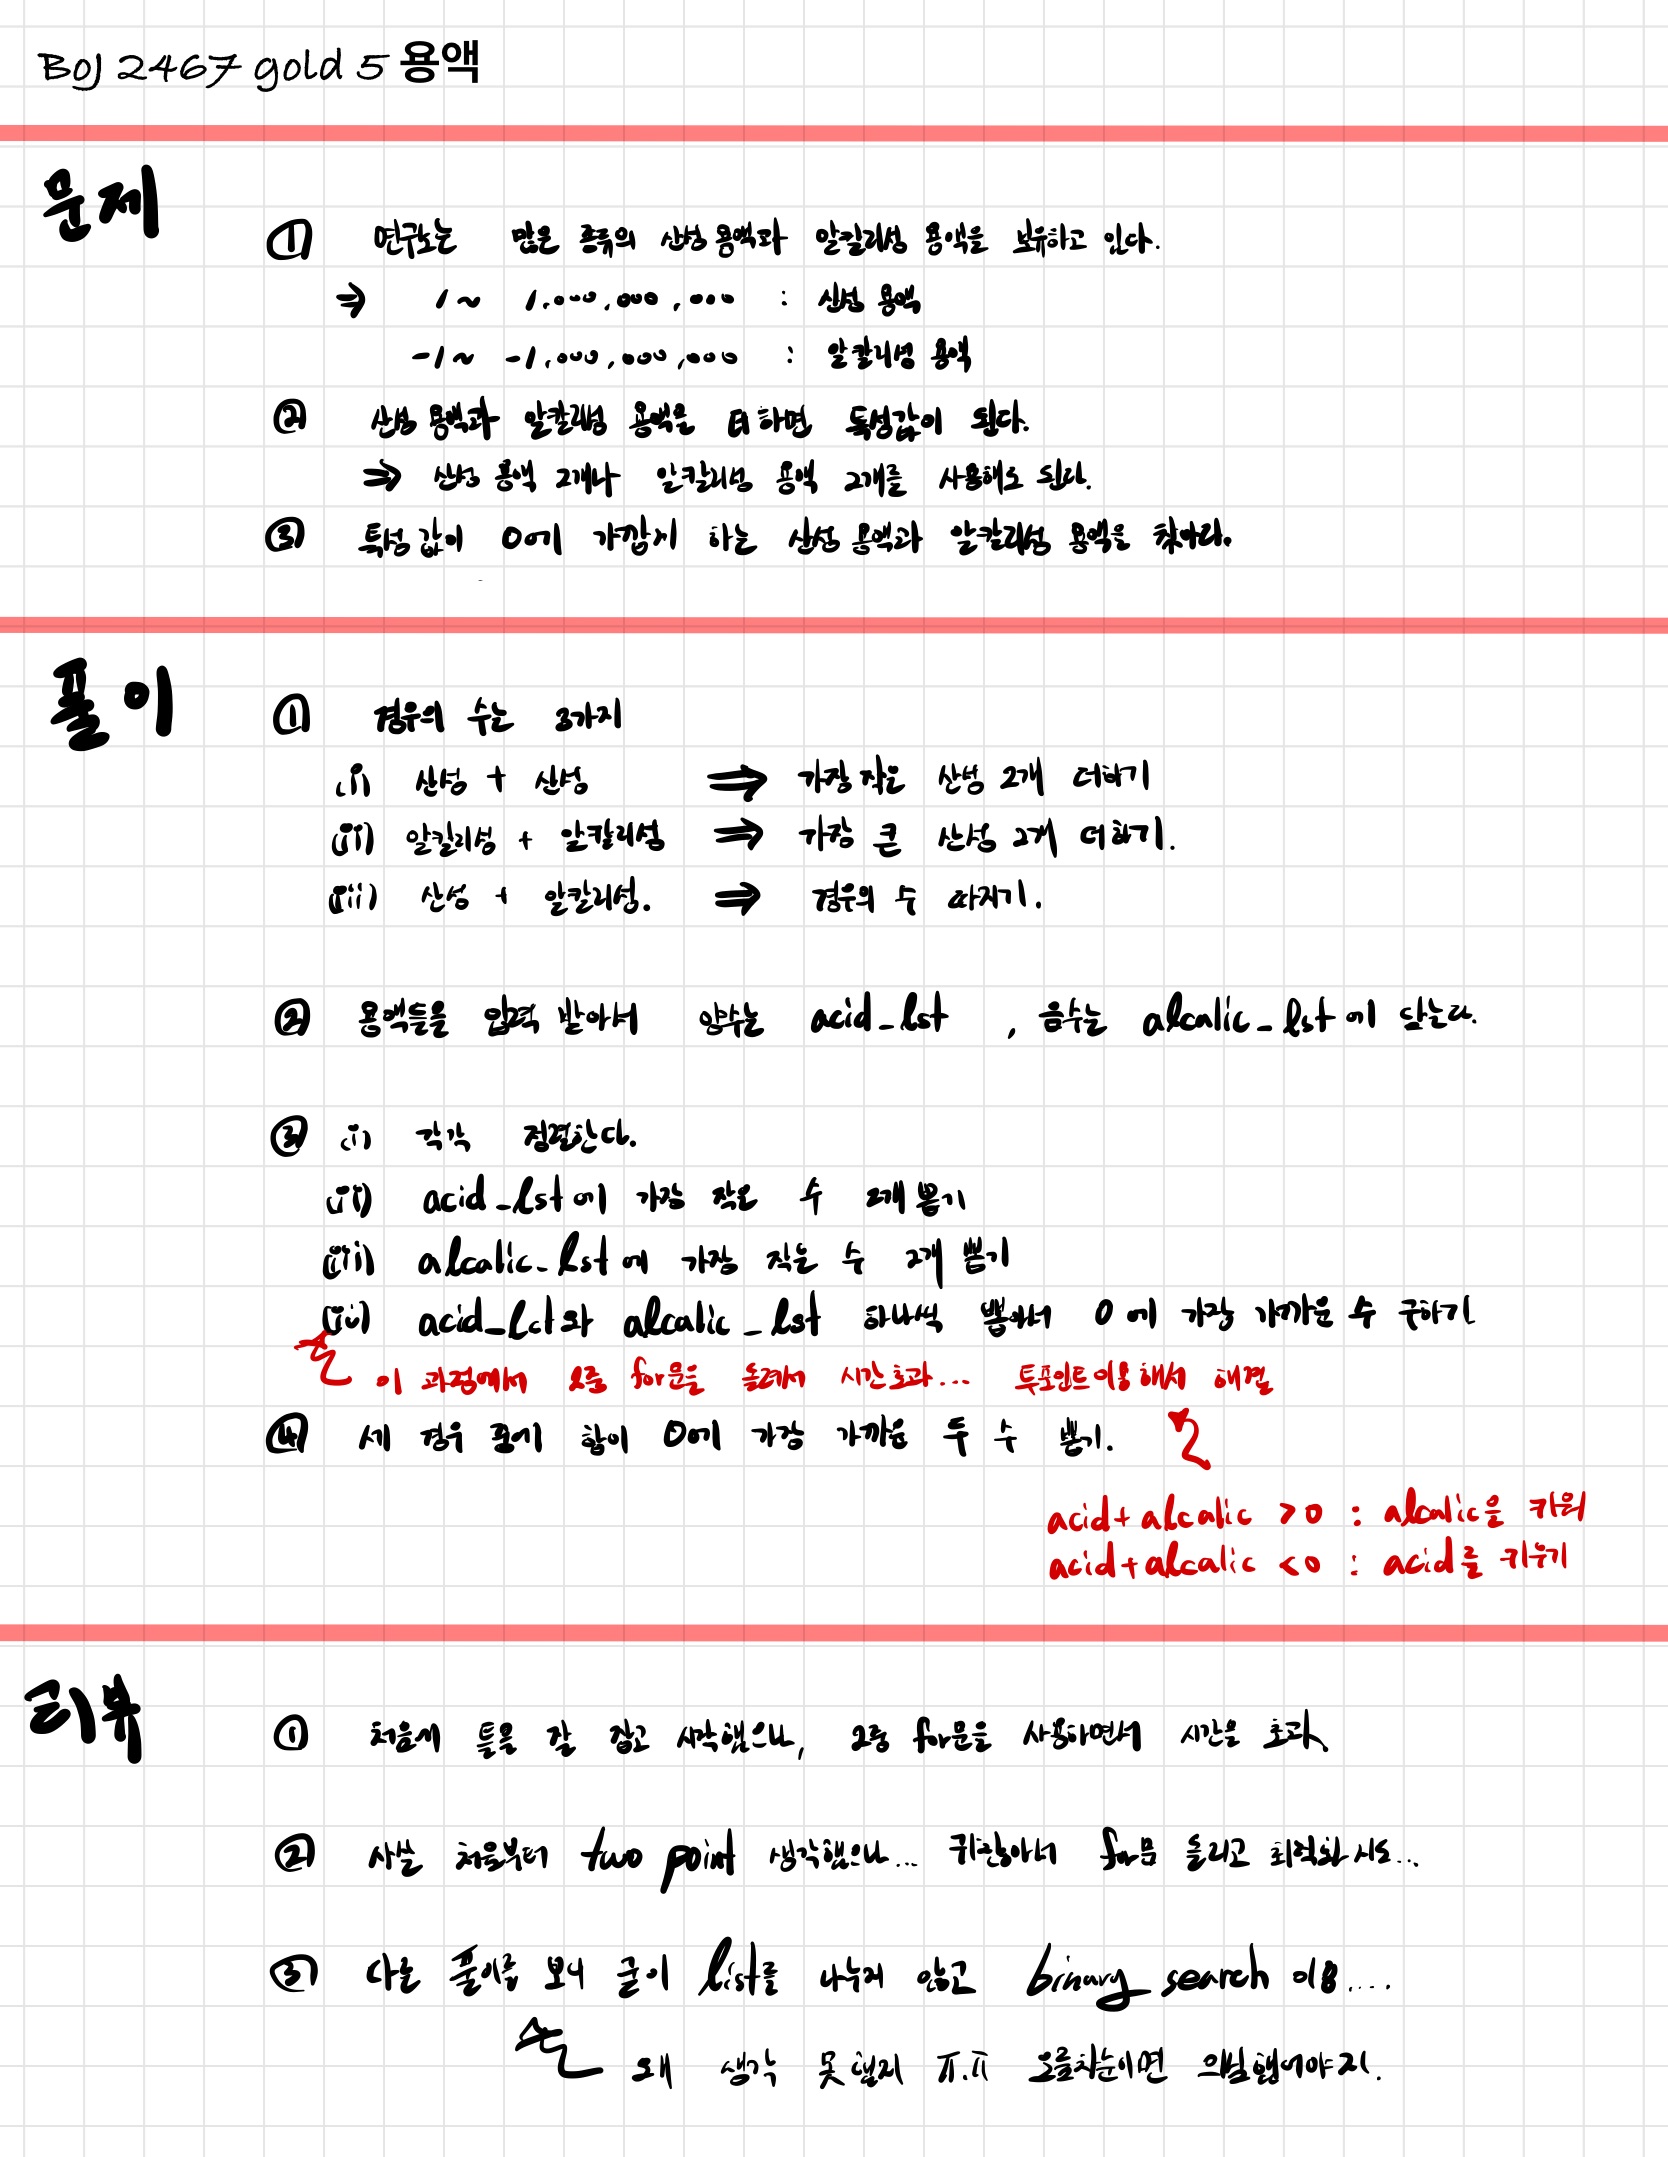 BOJ 2467 gold 5 용액
문제
① 연구소는 많은 종류의 산성 용액과 알칼리성 용액을 보유하고 있다.
⇒ 1 ~ 1,000,000,000 : 산성 용액
-1 ~ -1,000,000,000 : 알칼리성 용액
② 산성 용액과 알칼리성 용액을 더하면 특성값이 된다.
⇒ 산성 용액 2개나 알칼리성 용액 2개를 사용해도 된다.
③ 특성 값이 0에 가깝게 하는 산성 용액과 알칼리성 용액을 찾아라.
풀이
① 경우의 수는 3가지
(i) 산성 + 산성 ⇒ 가장 작은 산성 2개 더하기
(ii) 알칼리성 + 알칼리성 ⇒ 가장 큰 산성 2개 더하기.
(iii) 산성 + 알칼리성. ⇒ 경우의 수 따지기.
② 용액들을 입력 받아서 양수는 acid_lst , 음수는 alcalic_lst에 담는다.
③ (i) 각각 정렬한다.
(ii) acid_lst에 가장 작은 수 2개 뽑기
(iii) alcalic_lst에 가장 작은 수 2개 뽑기
(iv) acid_lst와 alcalic_lst 하나씩 뽑아서 0에 가장 가까운 수 구하기
이 과정에서 2중 for문을 돌려서 시간초과... 투포인트 이용해서 해결
④ 세 경우 중에 합이 0에 가장 가까운 두 수 뽑기.
acid+alcalic >0 : alcalic을 키워
acid+alcalic <0 : acid를 키우기
리뷰
① 처음에 틀을 잘 잡고 시작했으나, 2중 for문을 사용하면서 시간을 초과.
② 사실 처음부터 two point 생각했으나... 귀찮아서 for문 돌리고 최적화 시도...
③ 다른 풀이를 보니 굳이 list를 나누지 않고 binary_search 이용....
왜 생각 못했지 ㅠ.ㅠ 오름차순이면 의심했어야지.